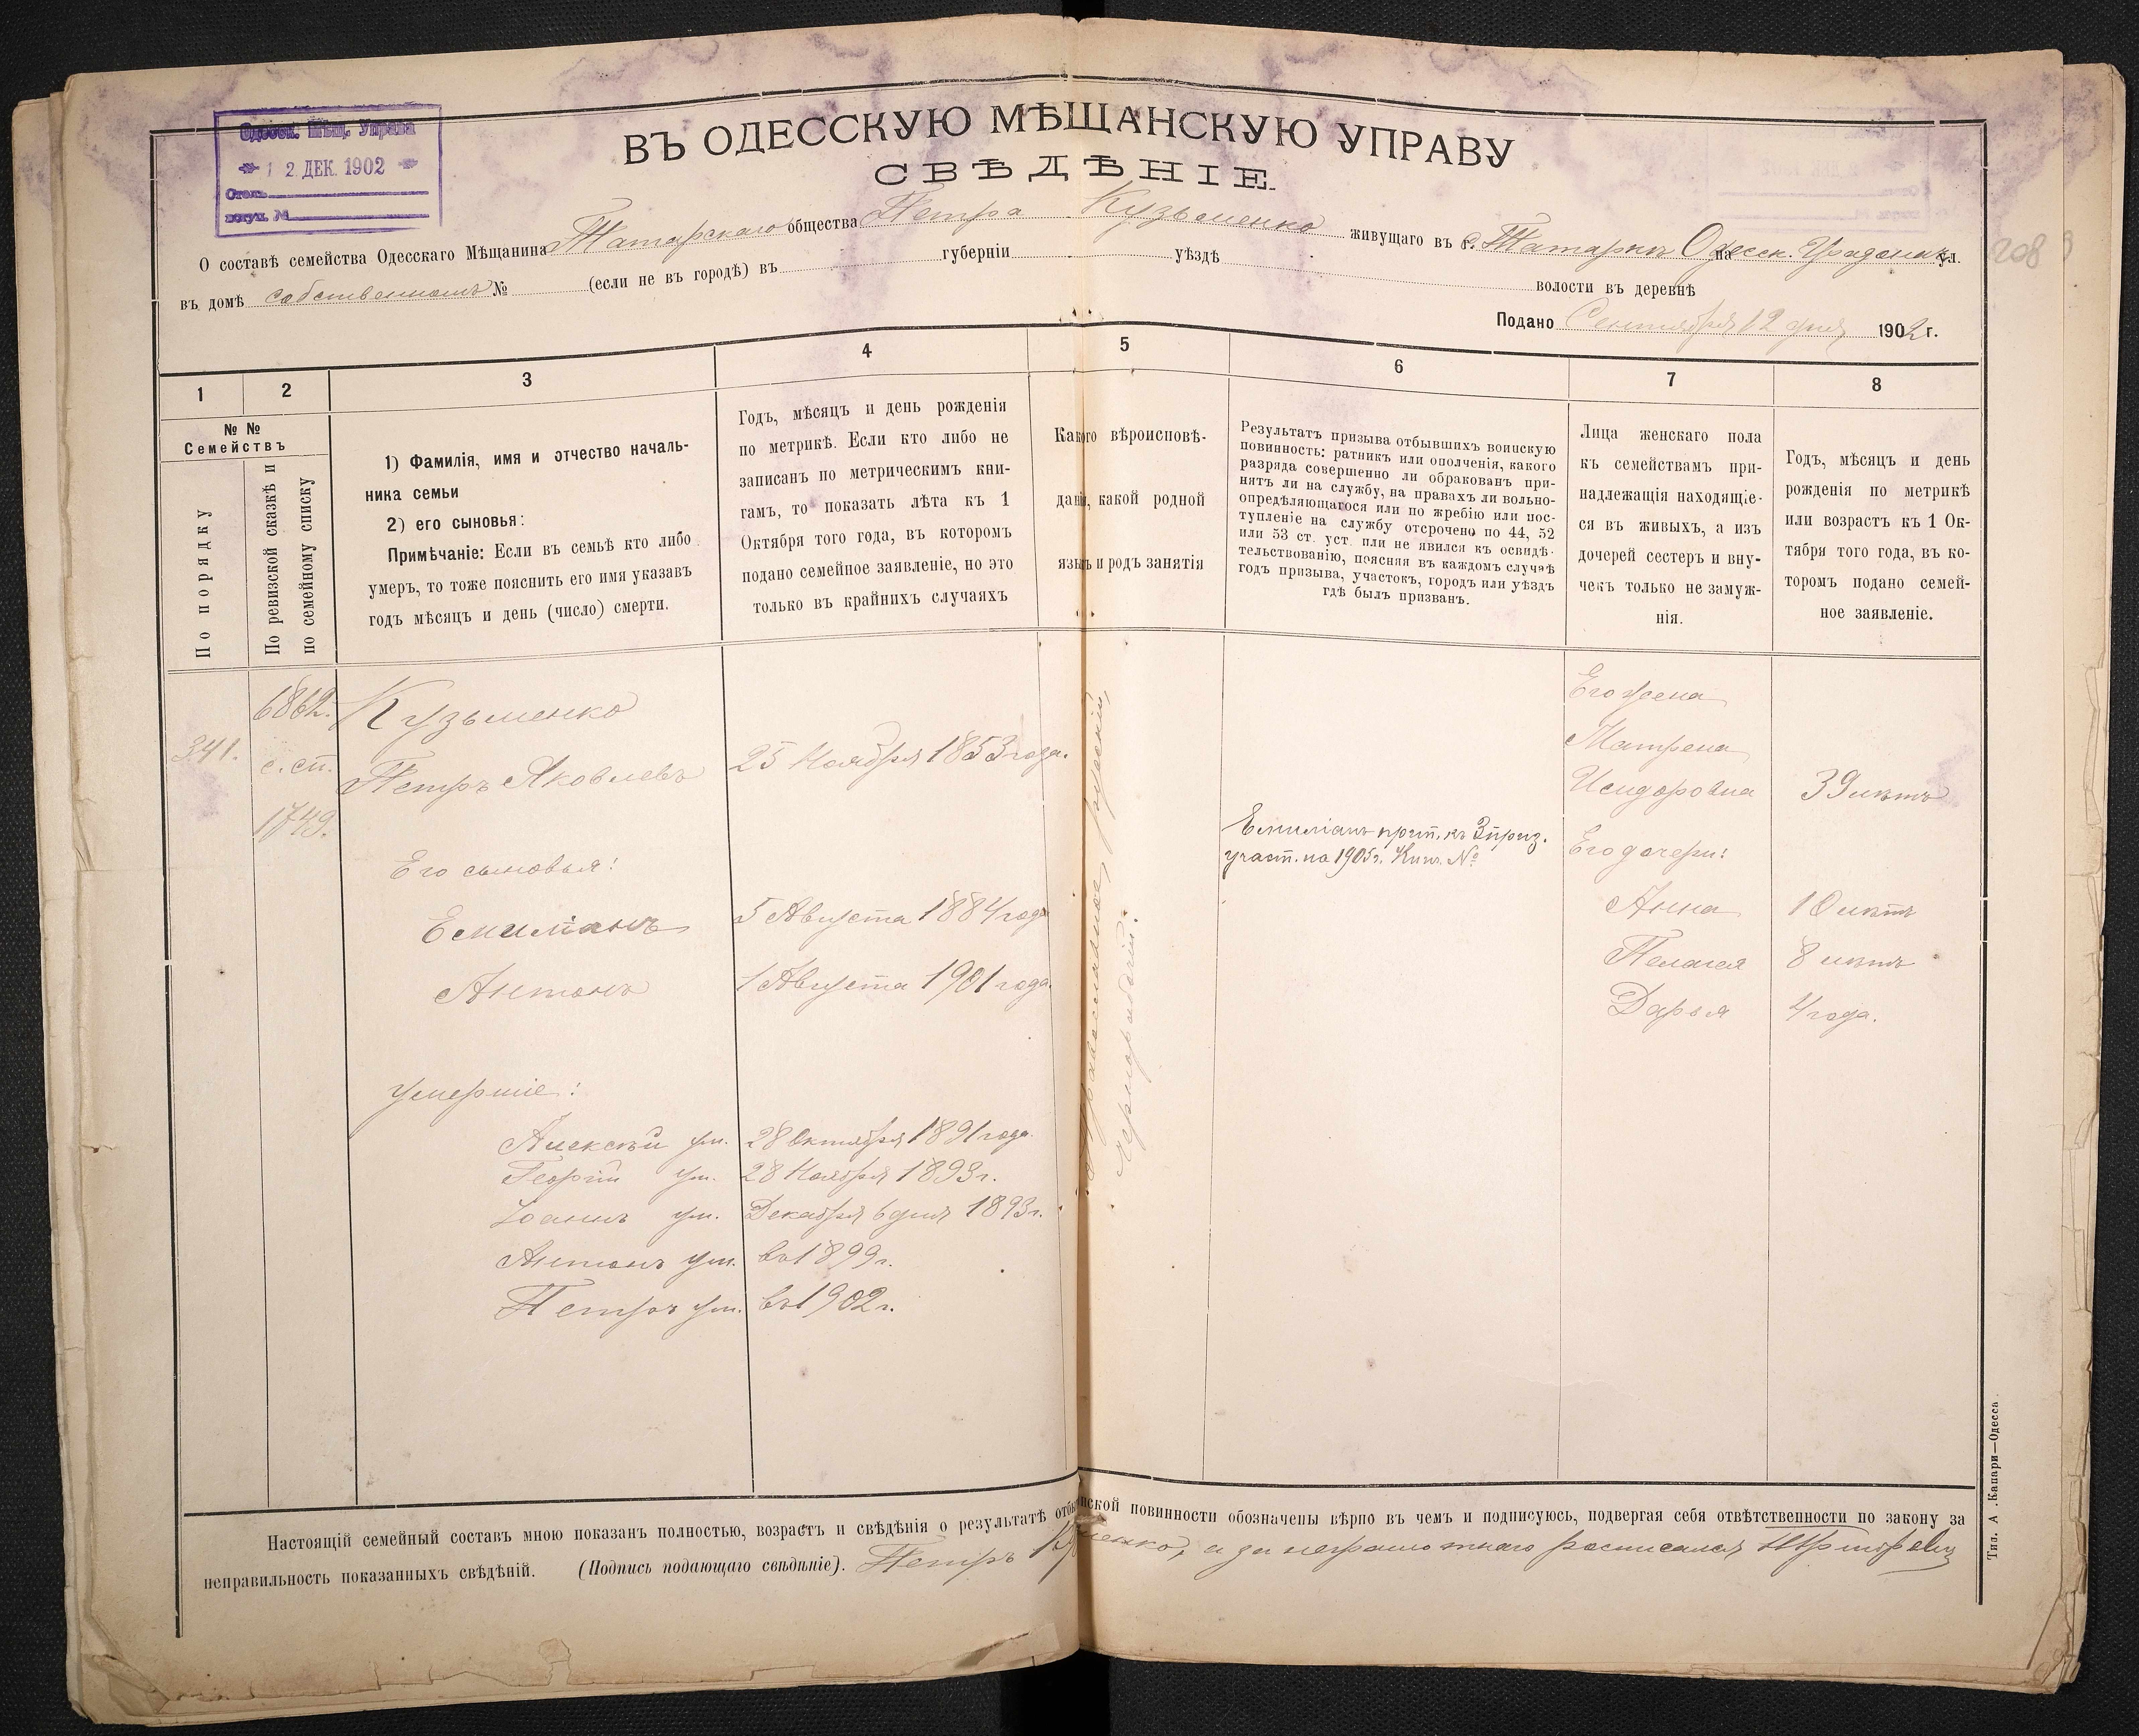 Одесск. Мѣщ. Управа
12 ДЕК. 1902
Столъ
вход. №
ВЪ ОДЕССКУЮ МѢЩАНСКУЮ УПРАВУ
СВѢДѢНІЕ
О составѣ семейства Одесскаго Мѣщанина Татарскаго общества Петра Кузьменко живущаго въ с. Татаркѣ Одесск. Градонач. на ул.
208
въ домѣ собственномъ № (если не въ городѣ) въ губерніи уѣздѣ волости въ деревнѣ
Подано Сентября 12 дня 1902 г.
1 2 3 4 5 6 7 8
№ №
Семействъ
По порядку
По ревизской сказкѣ и
по семейному списку
1) Фамилія, имя и отчество началь-
ника семьи
2) его сыновья:
Примѣчаніе: Если въ семьѣ кто либо
умеръ, то тоже пояснить его имя указавъ
годъ мѣсяцъ и день (число) смерти.
Годъ, мѣсяцъ и день рожденія
по метрикѣ. Если кто либо не
записанъ по метрическимъ кни-
гамъ, то показать лѣта къ 1
Октября того года, въ которомъ
подано семейное заявленіе, но это
только въ крайнихъ случаяхъ
Какого вѣроисповѣ-
данія, какой родной
языкъ и родъ занятія
Результатъ призыва отбывшихъ воинскую
повинность: ратникъ или ополченія, какого
разряда совершенно ли обракованъ при-
нятъ ли на службу, на правахъ ли вольно-
опредѣляющагося или по жребію или пос-
тупленіе на службу отсрочено по 44, 52
или 53 ст. уст. или не явился къ освидѣ-
тельствованію, поясняя въ каждомъ случаѣ
годъ призыва, участокъ, городъ или уѣздъ
гдѣ былъ призванъ.
Лица женскаго пола
къ семействамъ при-
надлежащія находящіе-
ся въ живыхъ, а изъ
дочерей сестеръ и вну-
чекъ только не замуж-
нія.
Годъ, мѣсяцъ и день
рожденія по метрикѣ
или возрастъ къ 1 Ок-
тября того года, въ ко-
торомъ подано семей-
ное заявленіе.
341.
6862.
с. сп.
1749.
Кузьменко
Петръ Яковлевъ 25 Ноября 1853 года.
Его сыновья:
Емиліанъ 5 Августа 1884 года
Антонъ 1 Августа 1901 года.
умершіе:
Алексѣй ум. 28 Октября 1891 года.
Георгій ум. 28 Ноября 1893 г.
Іоаннъ ум. Декабря 6 дня 1893 г.
Антонъ ум. въ 1899 г.
Петръ ум. въ 1902 г.
Православное, русскій,
чернорабочій.
Емиліанъ прип. къ 3 приз.
участ. на 1905 г. Книг. №
Его жена
Матрена
Исидоровна 39 лѣтъ
Его дочери:
Анна 10 лѣтъ
Пелагея 8 лѣтъ
Дарья 4 года.
Настоящій семейный составъ мною показанъ полностью, возрастъ и свѣдѣнія о результатѣ отбы нской повинности обозначены вѣрно въ чемъ и подписуюсь, подвергая себя отвѣтственности по закону за
неправильность показанныхъ свѣдѣній. (Подпись подающаго свѣдѣніе). Петръ Кузьменко, а за неграмотнаго росписался
Тип. А. Капари—Одесса.